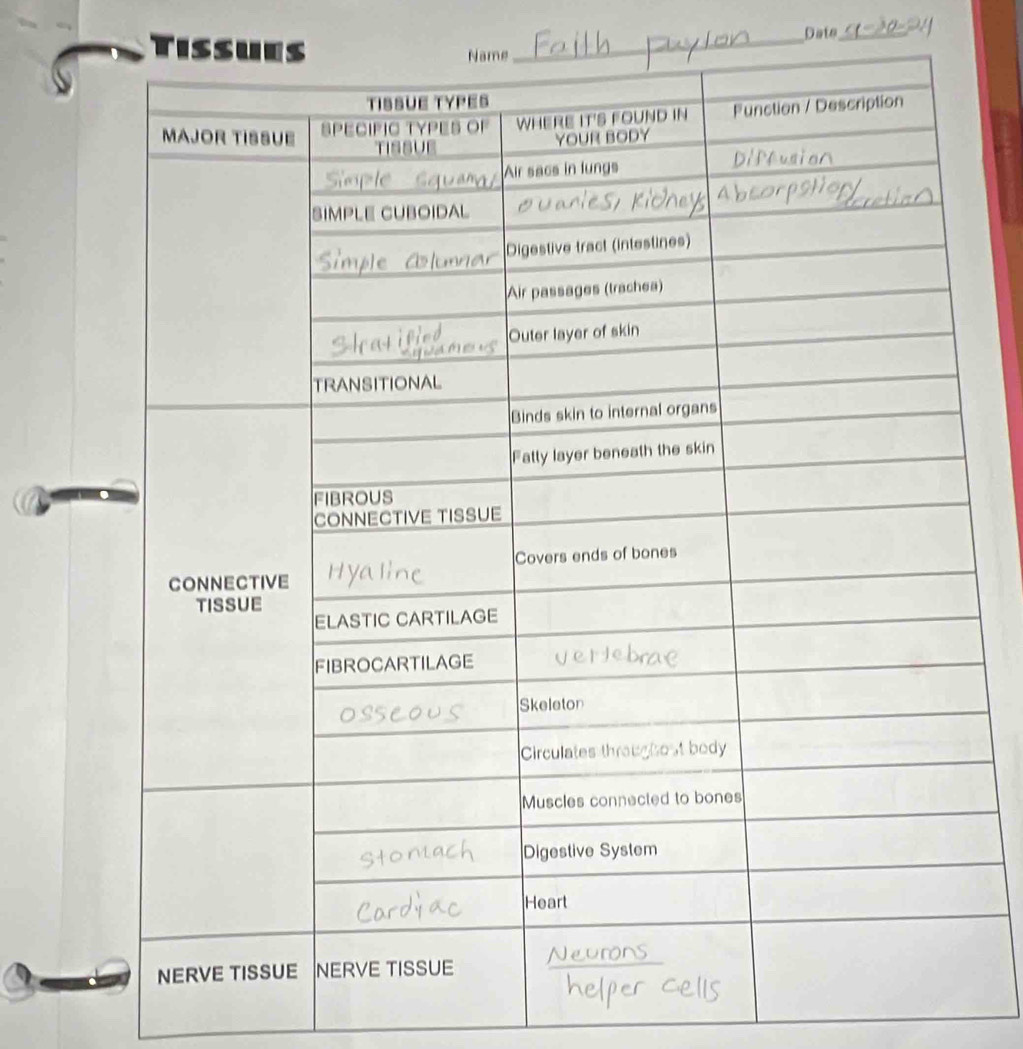 TISSUES
Name Faith payton Date 9-20-24
TISSUE TYPES
MAJOR TISSUE SPECIFIC TYPES OF TISSUE WHERE IT'S FOUND IN YOUR BODY Function / Description
Simple squama Air sacs in lungs Diffusion
SIMPLE CUBOIDAL ovaries, Kidneys Absorpstion/
Simple Columnar Digestive tract (intestines)
Air passages (trachea)
Stratified squamous Outer layer of skin
TRANSITIONAL
Binds skin to internal organs
Fatty layer beneath the skin
FIBROUS
CONNECTIVE TISSUE
Hyaline Covers ends of bones
CONNECTIVE
TISSUE
ELASTIC CARTILAGE
FIBROCARTILAGE vertebrae
osseous Skeleton
Circulates throughout body
Muscles connected to bones
stomach Digestive System
Cardiac Heart
NERVE TISSUE NERVE TISSUE Neurons
helper cells